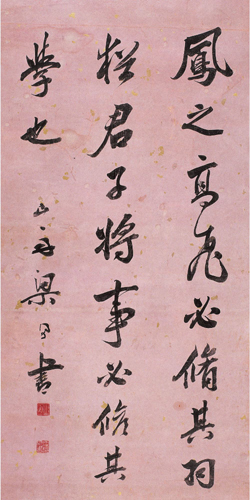 鳳之高飛必脩其
猶君子將事必脩其
學也
山舟梁同書